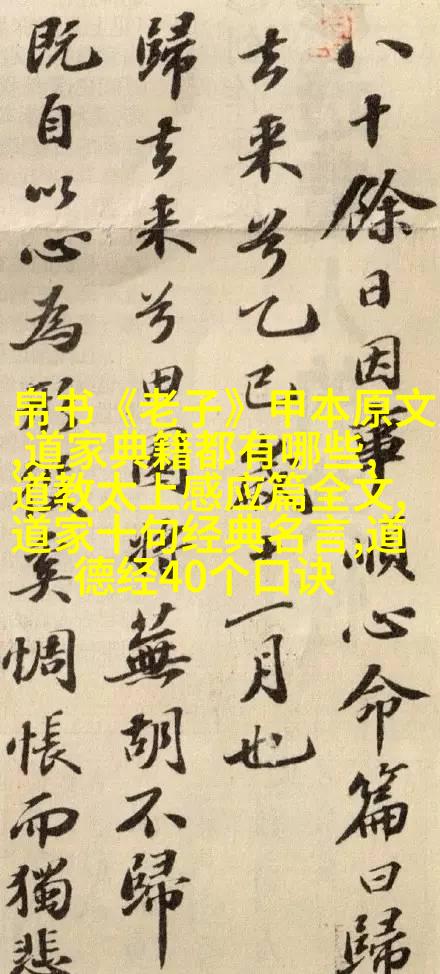 八十餘日因事順心命篇曰歸
去来兮乙巳歲十一月也
歸去来兮田園将蕪胡不歸
既自以心為形役奚惆悵而獨悲
帛书《老子》甲本原文
,道家典籍都有哪些,
道教太上感应篇全文,
道家十句经典名言,道
德经40个口诀